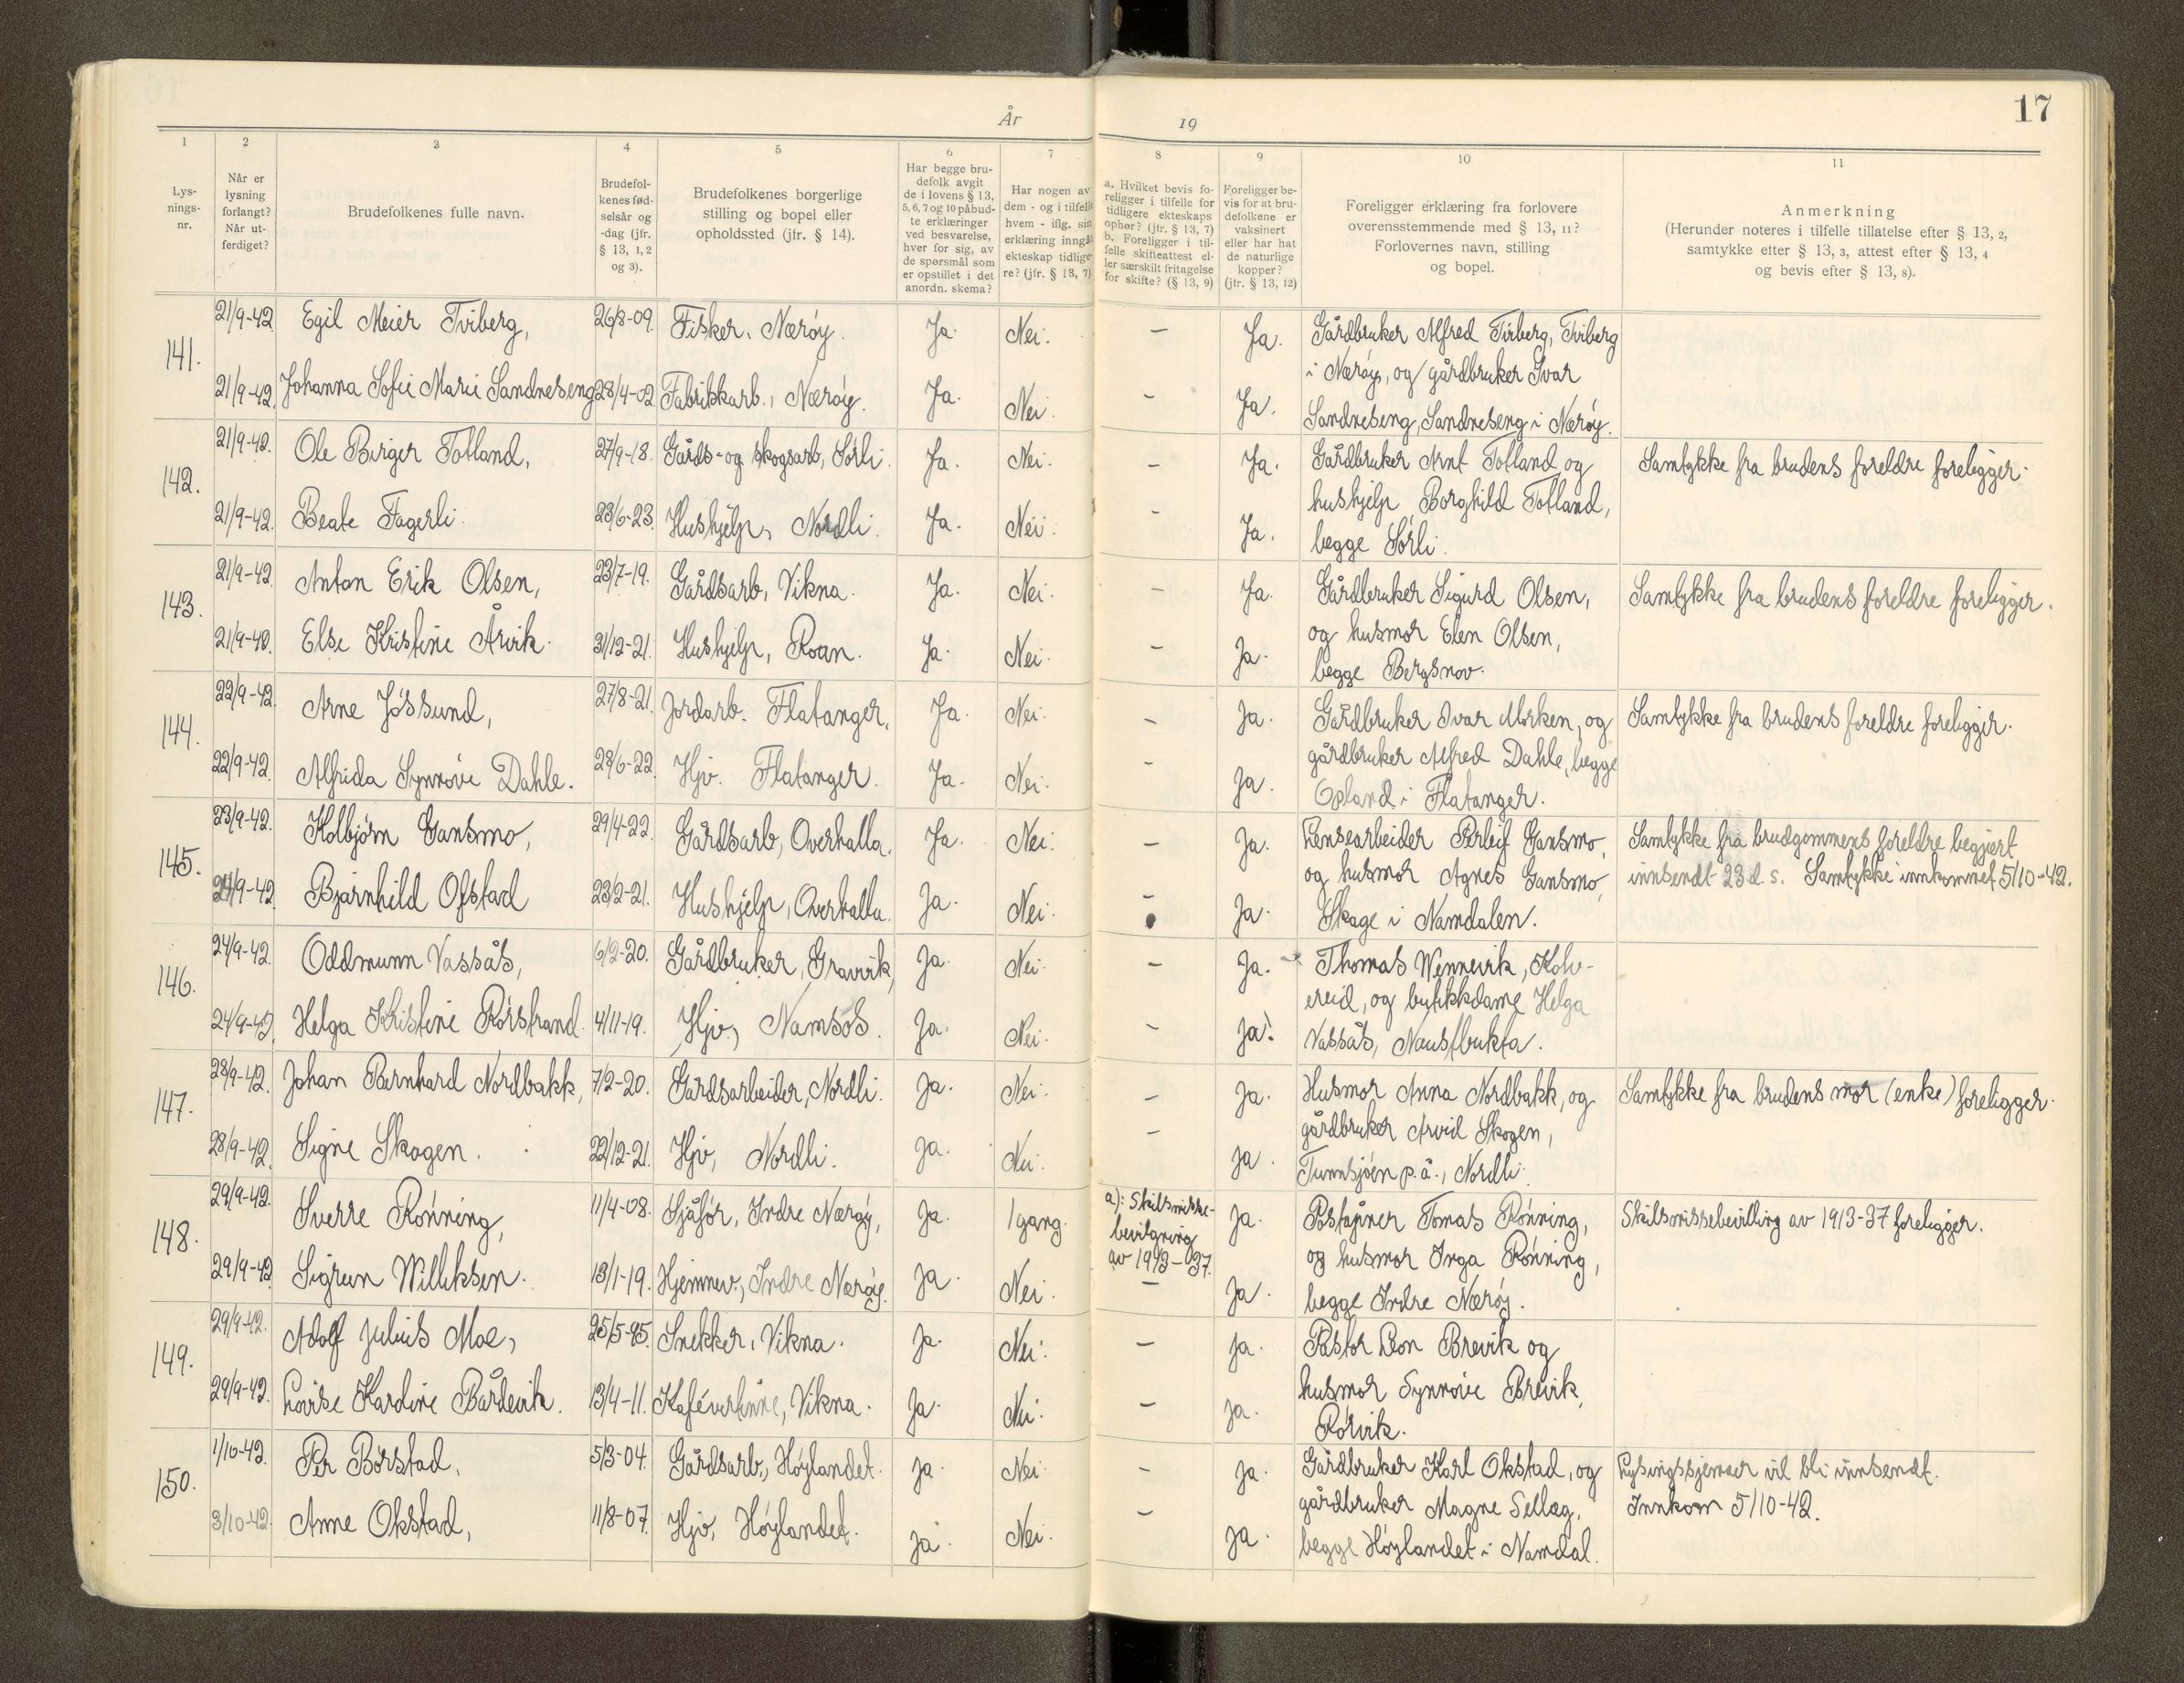 17
År 19
1 2 3 4 5 6 7 8 9 10 11
Lys-
nings-
nr.
Når er
lysning
forlangt?
Når ut-
ferdiget?
Brudefolkenes fulle navn.
Brudefol-
kenes fød-
selsår og
-dag (jfr.
§ 13, 1, 2
og 3).
Brudefolkenes borgerlige
stilling og bopel eller
opholdssted (jfr. § 14).
Har begge bru-
defolk avgit
de i lovens § 13,
5, 6, 7 og 10 påbud-
te erklæringer
ved besvarelse,
hver for sig, av
de spørsmål som
er opstillet i det
anordn. skema?
Har nogen av
dem - og i tilfelle
hvem - iflg. sin
erklæring inngåt
ekteskap tidlige-
re? (jfr. § 13, 7)
a. Hvilket bevis fo-
religger i tilfelle for
tidligere ekteskaps
ophør? (jfr. § 13, 7)
b. Foreligger i til-
felle skifteattest el-
ler særskilt fritagelse
for skifte? (§ 13, 9)
Foreligger be-
vis for at bru-
defolkene er
vaksinert
eller har hat
de naturlige
kopper?
(jfr. § 13, 12)
Foreligger erklæring fra forlovere
overensstemmende med § 13, 11?
Forlovernes navn, stilling
og bopel.
Anmerkning
(Herunder noteres i tilfelle tillatelse efter § 13, 2,
samtykke efter § 13, 3, attest efter § 13, 4
og bevis efter § 13, 8).
141.
21/9-42. Egil Meier Tviberg, 26/3-09. Fisker, Nærøy. Ja. Nei. — Ja.
21/9-42. Johanna Sofie Marie Sandneseng 28/4-02. Fabrikkarb., Nærøy. Ja. Nei. - Ja.
Gårdbruker Alfred Tviberg, Tviberg
i Nærøy, og gårdbruker Ivar
Sandneseng, Sandneseng i Nærøy.
142.
21/9-42. Ole Birger Totland, 27/9-18. Gårds- og skogsarb, Sørli. Ja. Nei. — Ja.
21/9-42. Beate Fagerli. 23/6-23. Hushjelp, Nordli. Ja. Nei. - Ja.
Gårdbruker Arnt Totland og
hushjelp Borghild Totland,
begge Sørli.
Samtykke fra brudens foreldre foreligger.
143.
21/9-42. Anton Erik Olsen, 23/7-19. Gårdsarb, Vikna. Ja. Nei. — Ja.
21/9-42. Else Kristine Årvik. 31/12-21. Hushjelp, Roan. Ja. Nei. — Ja.
Gårdbruker Sigurd Olsen,
og husmor Elen Olsen,
begge Bergsnov.
Samtykke fra brudens foreldre foreligger.
144.
22/9-42. Arne Jøssund, 27/8-21. Jordarb. Flatanger. Ja. Nei. — Ja.
22/9-42. Alfrida Synnøve Dahle. 28/6-22. Hjv. Flatanger. Ja. Nei. - Ja.
Gårdbruker Ivar Morken, og
gårdbruker Alfred Dahle, begge
Opland i Flatanger.
Samtykke fra brudens foreldre foreligger.
145.
23/9-42. Kolbjørn Gansmo, 29/4-22. Gårdsarb, Overhalla. Ja. Nei. — Ja.
24/9-42. Bjarnhild Ofstad 23/2-21. Hushjelp, Overhalla. Ja. Nei. - Ja.
Lensearbeider Perleif Gansmo,
og husmor Agnes Gansmo,
Skage i Namdalen.
Samtykke fra brudgommens foreldre begjært
innsendt 23 d. s. Samtykke innkommet 5/10-42.
146.
24/9-42. Oddmunn Vassås, 6/2-20. Gårdbruker, Gravvik, Ja. Nei. — Ja.
24/9-42. Helga Kristine Rørstrand. 4/11-19. Hjv, Namsos. Ja. Nei. - Ja.
Thomas Wennevik, Kolv-
ereid, og butikkdame Helga
Vassås, Naustbukta.
147.
28/9-42. Johan Bernhard Nordbakk, 7/2-20. Gårdsarbeider, Nordli. Ja. Nei. — Ja.
28/9-42. Signe Skogen. 22/12-21. Hjv, Nordli. Ja. Nei. — Ja.
Husmor Anna Nordbakk, og
gårdbruker Arvid Skogen,
Tunnsjøen p.å., Nordli.
Samtykke fra brudens mor (enke) foreligger.
148.
29/9-42. Sverre Rønning, 11/4-08. Sjåfør, Indre Nærøy, Ja. 1 gang. a): Skilsmisse-
bevilgning
av 19/3-37. Ja.
29/9-42. Sigrun Williksen. 13/1-19. Hjemmev., Indre Nærøy. Ja. Nei. — Ja.
Poståpner Tomas Rønning,
og husmor Inga Rønning,
begge Indre Nærøy.
Skilsmissebevilling av 19/3-37 foreligger.
149.
29/9-42. Adolf Julius Moe, 25/5-95. Snekker, Vikna. Ja. Nei. — Ja.
29/9-42. Lovise Kardine Bårdevik. 13/4-11. Kafévertinne, Vikna. Ja. Nei. — Ja.
Pastor Leon Brevik og
husmor Synnøve Brevik,
Rørvik.
150.
1/10-42. Per Børstad, 5/3-04. Gårdsarb., Høylandet. Ja. Nei. - Ja.
3/10-42. Anne Okstad, 11/8-07. Hjv, Høylandet. Ja. Nei. — Ja.
Gårdbruker Karl Okstad, og
gårdbruker Magne Sellæg,
begge Høylandet i Namdal.
Lysingsskjemaer vil bli innsendt.
Innkom 5/10-42.